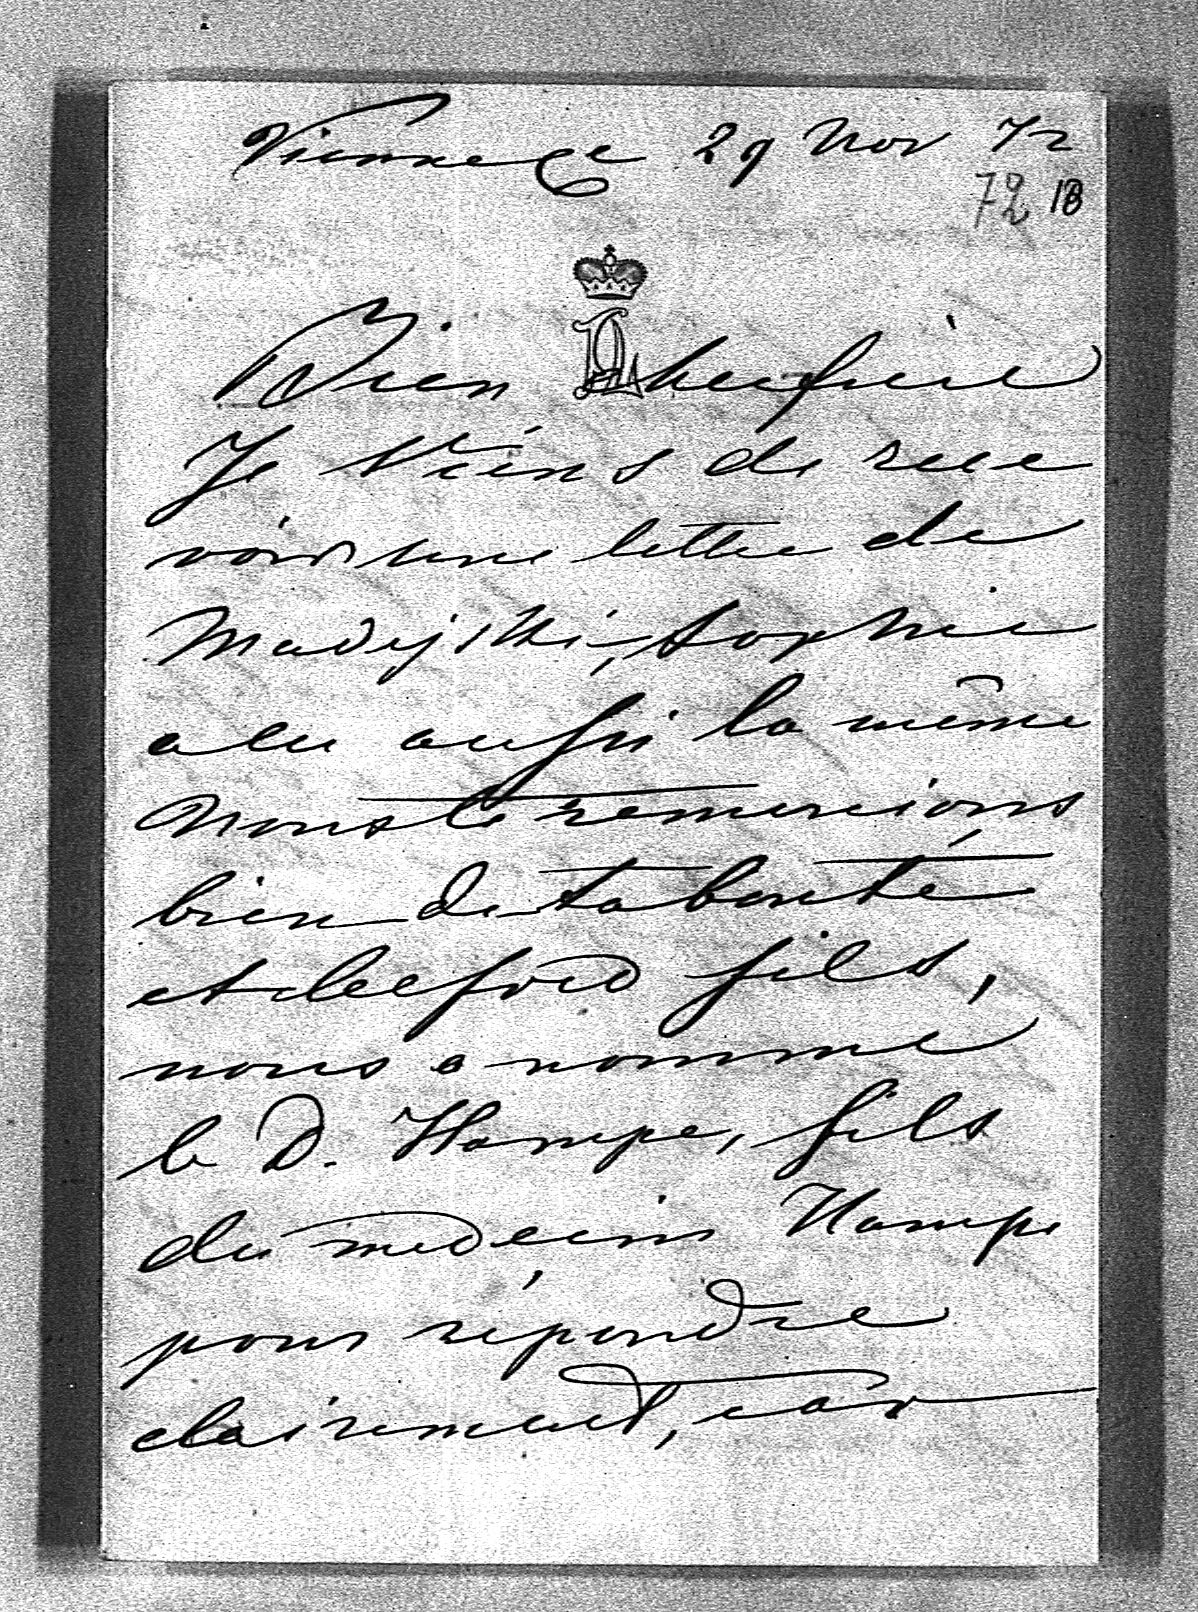 Vienne ce 29 Nov 72
72 18
Bien cher frère
Je viens de rece
voir une lettre de
Madejski, Sophie
a eu aussi la même
Nous te remercions
bien de ta bonté
et fils,
nous a nommé
le D. Hampe, fils
du médecin Hampe
pour répondre
clairement, car